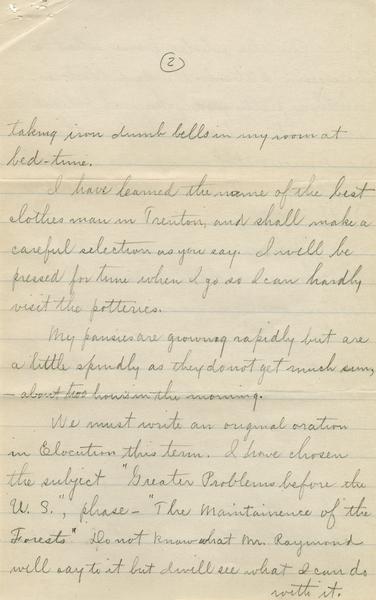 (2)
taking iron dumb bells in my room at
bed-time.
I have learned the name of the best
clothes man in Trenton, and shall make a
careful selection as you say. I will be
pressed for time when I go so I can hardly
visit the potteries.
My pansies are growing rapidly but are
a little spindly as they do not get much sun,
- about two hours in the morning.
We must write an original oration
in Elocution this term. I have chosen
the subject "Greater Problems before the
U. S.", phase - "The Maintainence of the
Forests" Do not know what Mr. Raymond
will say to it but I will see what I can do
with it.